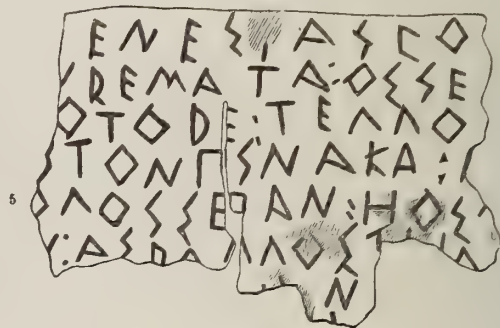 ΕΝΕΣ ΑΣΠΟ
ΡΕΜΑΤΑ:ΟΣΣΕ
ΟΤΟΡΕ:ΤΕΛΛΟ
ΤΟΝΠΣΝΑΚΑ:
5 ΟΛΟΣΣΕΟΑΝ:ΗΟΣ
:ΑΣΣΡ ΛΛΟΣ
Ν